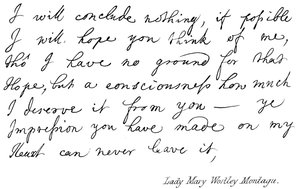 I will conclude nothing, if poſsible
I will hope you think of me,
tho' I have no ground for that
Hope, but a consciousness how much
I deserve it from you — ye
Impression you have made on my
Heart can never leave it,
Lady Mary Wortley Montagu.